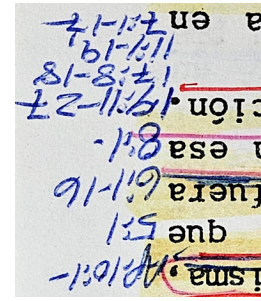 isma. Ap:10:1-
que 5:1
fuera 6:1-16
esa 8:1-
ción. 19:11-27
17:8-18
11:1-19
a en 7:1-17